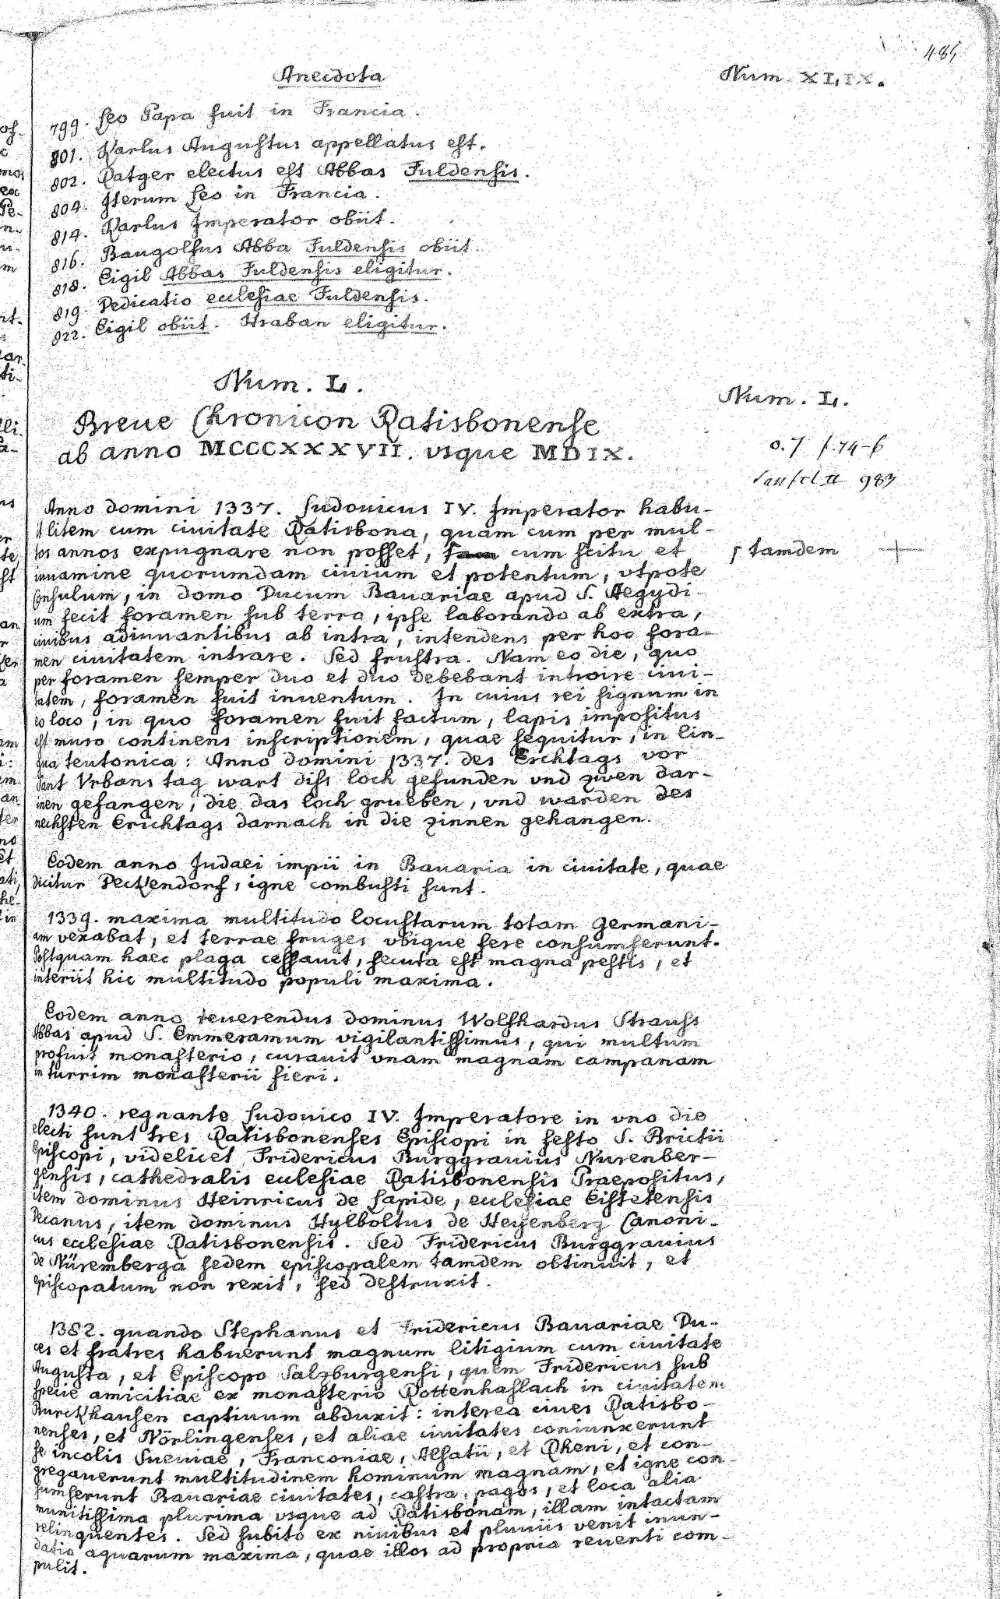 485
Anecdota
Num. XLIX.
799. Leo Papa fuit in Francia.
801. Karlus Augustus appellatus est.
802. Ratger electus est Abbas Fuldensis.
804. Iterum Leo in Francia.
814. Karlus Imperator obiit.
816. Baugolfus Abba Fuldensis obiit.
818. Eigil Abbas Fuldensis eligitur.
819. Dedicatio ecclesiae Fuldensis.
822. Eigil obiit. Hraban eligitur.
Num. L.
Num. L.
Breue Chronicon Ratisbonense
ab anno MCCCXXXVII. vsque MDIX.
o. 7 f. 74-b
II 983
Anno domini 1337. Ludouicus IV. Imperator habu-
it litem cum ciuitate Ratisbona, quam cum per mul-
tos annos expugnare non posset, tam cum scitu et
tamdem
iuuamine quorumdam ciuium et potentum, vtpote
Consulum, in domo Ducum Bauariae apud S. Aegydi-
um fecit foramen sub terra, ipse laborando ab extra,
ciuibus adiuuantibus ab intra, intendens per hoc fora-
men ciuitatem intrare. Sed frustra. Nam eo die, quo
per foramen semper duo et duo debebant introire ciui-
tatem, foramen fuit inuentum. In cuius rei signum in
eo loco, in quo foramen fuit factum, lapis impositus
est muro continens inscriptionem, quae sequitur, in lin-
gua teutonica: Anno domini 1337. des Ercktags vor
Sant Vrbans tag wart diss loch gefunden vnd zwen dar-
inen gefangen, die das loch grueben, vnd warden des
nechsten Ericktags darnach in die zinnen gehangen.
Eodem anno Judaei impii in Bauaria in ciuitate, quae
dicitur Deckendorf, igne combusti sunt.
1339. maxima multitudo locustarum totam Germani-
am vexabat, et terrae fruges vbique fere consumserunt.
Postquam haec plaga cessauit, secuta est magna pestis, et
interiit hic multitudo populi maxima.
Eodem anno reuerendus dominus Wolfhardus Strauss
Abbas apud S. Emmeramum vigilantissimus, qui multum
profuit monasterio, curauit vnam magnam campanam
in turrim monasterii fieri.
1340. regnante Ludouico IV. Imperatore in vno die
electi sunt tres Ratisbonenses Episcopi in festo S. Brictii
Episcopi, videlicet Fridericus Burggrauius Nurenber-
gensis, cathedralis ecclesiae Ratisbonensis Praepositus,
item dominus Heinricus de Lapide, ecclesiae Eistetensis
Decanus, item dominus Hylboltus de Heyenberg Canoni-
cus ecclesiae Ratisbonensis. Sed Fridericus Burggrauius
de Nüremberga sedem episcopalem tamdem obtinuit, et
episcopatum non rexit, sed destruxit.
1382. quando Stephanus et Fridericus Bauariae Du-
ces et fratres habuerunt magnum litigium cum ciuitate
Augusta, et Episcopo Salzburgensi, quem Fridericus sub
specie amicitiae ex monasterio Rottenhaslach in ciuitatem
Burckhausen captiuum abduxit: interea ciues Ratisbo-
nenses, et Nörlingenses, et aliae ciuitates coniunxerunt
se incolis Sueuiae, Franconiae, Alsatii, et Rheni, et con-
gregauerunt multitudinem hominum magnam, et igne con-
sumserunt Bauariae ciuitates, castra, pagos, et loca alia
munitissima plurima vsque ad Ratisbonam, illam intactam
relinquentes. Sed subito ex niuibus et pluuiis venit inun-
datio aquarum maxima, quae illos ad propria reuerti com-
pulit.